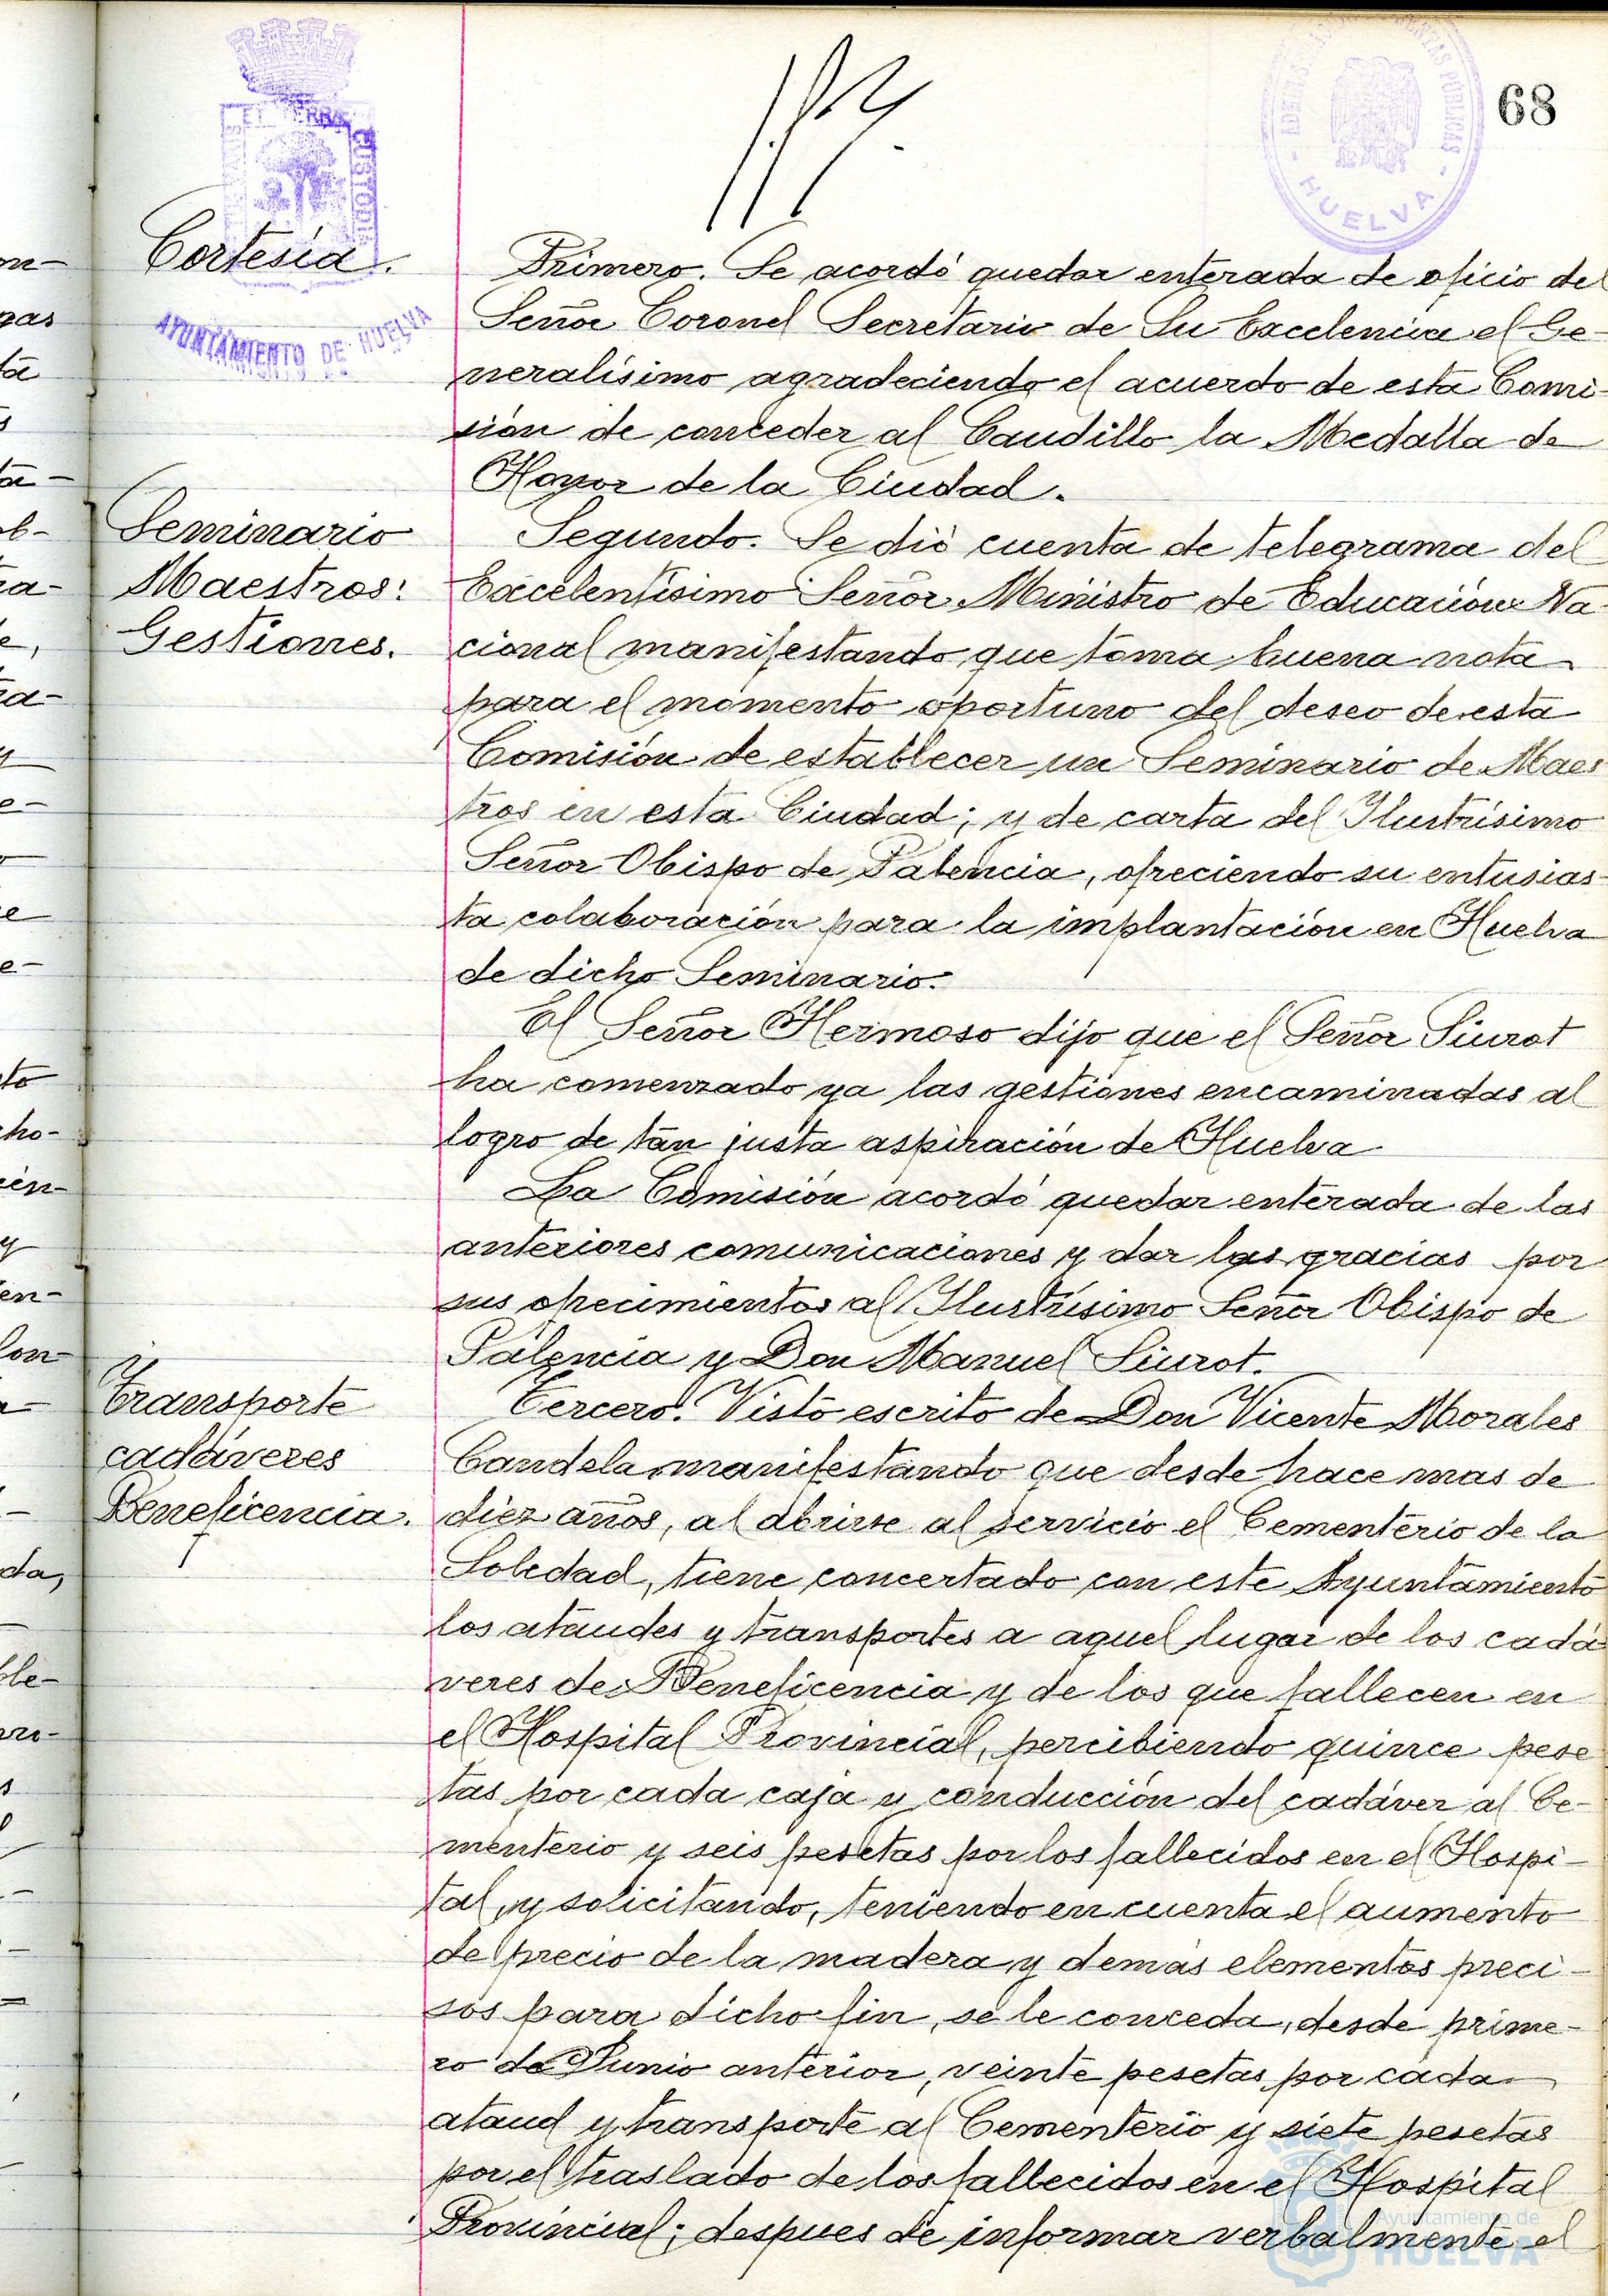 68
PORTUS MARIS ET TERRAE CUSTODIA
AYUNTAMIENTO DE HUELVA
HUELVA
Cortesía.
Primero. Se acordó quedar enterada de oficio del
Señor Coronel Secretario de Su Excelencia el Ge-
neralísimo agradeciendo el acuerdo de esta Comi-
sión de conceder al Caudillo la Medalla de
Honor de la Ciudad.
Seminario
Maestros:
Gestiones.
Segundo. Se dió cuenta de telegrama del
Excelentísimo Señor Ministro de Educación Na-
cional manifestando que toma buena nota
para el momento oportuno del deseo de esta
Comisión de establecer un Seminario de Maes
tros en esta Ciudad; y de carta del Ilustrísimo
Señor Obispo de Palencia, ofreciendo su entusias-
ta colaboración para la implantación en Huelva
de dicho Seminario.
El Señor Hermoso dijo que el Señor Siurot
ha comenzado ya las gestiones encaminadas al
logro de tan justa aspiración de Huelva
La Comisión acordó quedar enterada de las
anteriores comunicaciones y dar las gracias por
sus ofrecimientos al Ilustrísimo Señor Obispo de
Palencia y Don Manuel Siurot.
Transporte
cadáveres
Beneficencia.
Tercero. Visto escrito de Don Vicente Morales
Candela manifestando que desde hace mas de
diez años, al abrirse al servicio el Cementerio de la
Soledad, tiene concertado con este Ayuntamiento
los ataudes y transportes a aquel lugar de los cadá
veres de Beneficencia y de los que fallecen en
el Hospital Provincial, percibiendo quince pese
tas por cada caja y conducción del cadáver al Ce-
menterio y seis pesetas por los fallecidos en el Hospi-
tal, y solicitando, teniendo en cuenta el aumento
de precio de la madera y demás elementos preci-
sos para dicho fin, se le conceda, desde prime-
ro de Junio anterior, veinte pesetas por cada
ataud y transporte al Cementerio y siete pesetas
por el traslado de los fallecidos en el Hospital
Provincial; despues de informar verbalmente el
Ayuntamiento de
HUELVA